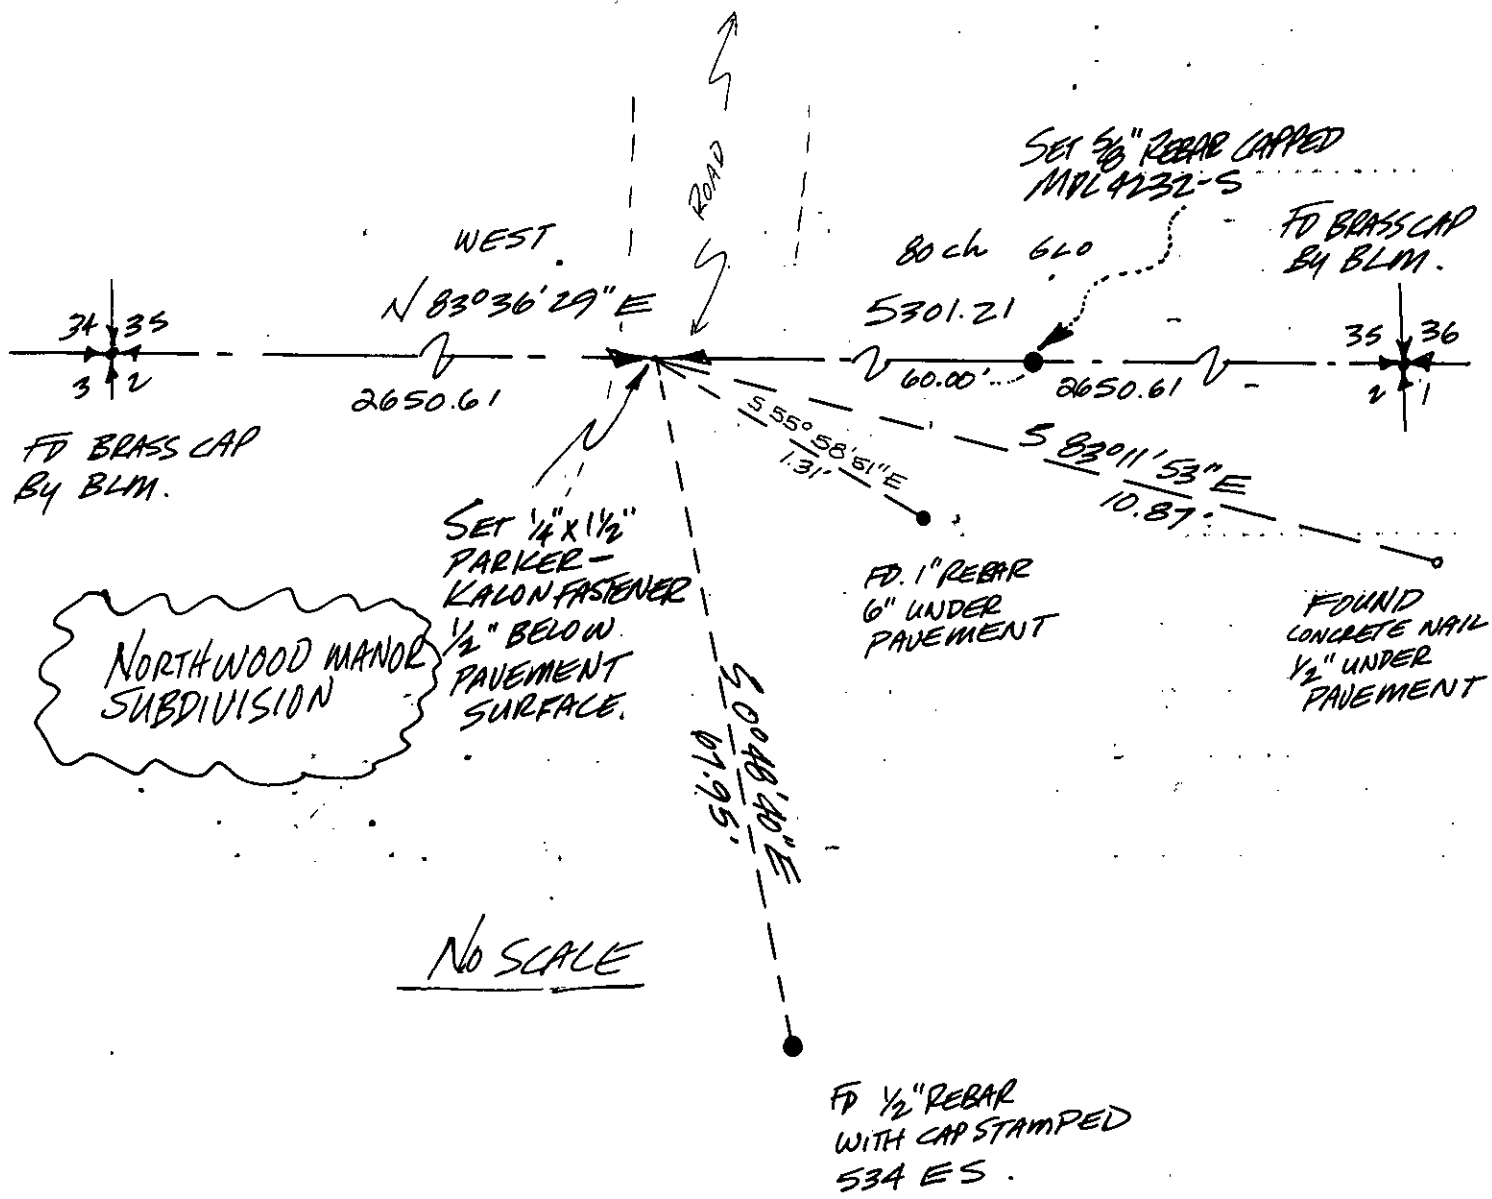 ROAD
SET 5/8" REBAR CAPPED
MDL 4232-S
WEST
80 ch GLO
FD BRASS CAP
By BLM.
N 83°36'29" E
5301.21
34 35
3 2
35 36
2 1
2650.61
60.00'
2650.61
FD BRASS CAP
By BLM.
S 55°58'51" E
1.31'
S 83°11'53" E
10.87
SET 1/4" X 1 1/2"
PARKER-
KALON FASTENER
1/2" BELOW
PAVEMENT
SURFACE.
FD. 1" REBAR
6" UNDER
PAVEMENT
FOUND
CONCRETE NAIL
1/2" UNDER
PAVEMENT
NORTHWOOD MANOR
SUBDIVISION
S 0°48'40" E
67.95'
NO SCALE
FD 1/2" REBAR
WITH CAP STAMPED
534 ES.